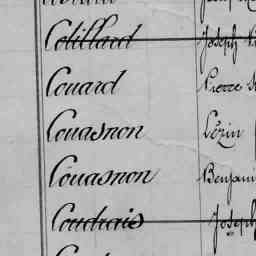 Colillard Joseph
Couard Pierre
Couasnon Lézin
Couasnon Benjami
Coudrais Joseph